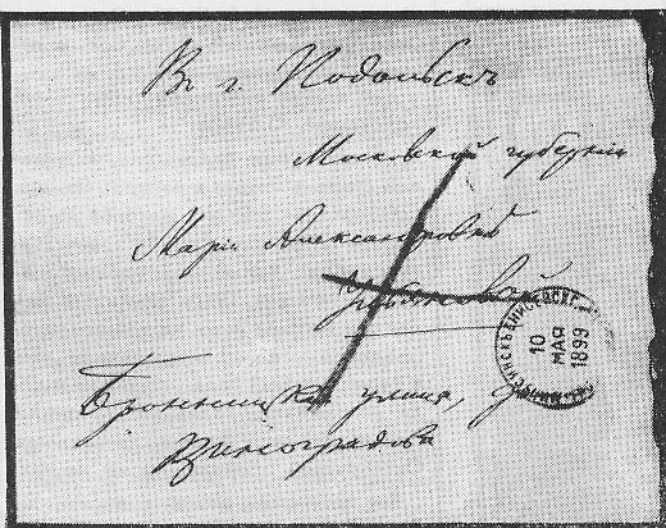 Въ г. Подольскъ
Московской губернии
Марiи Александровне
Ульяновой
Бронницкая улица, д.
Виноградова
10
МАЯ
1899